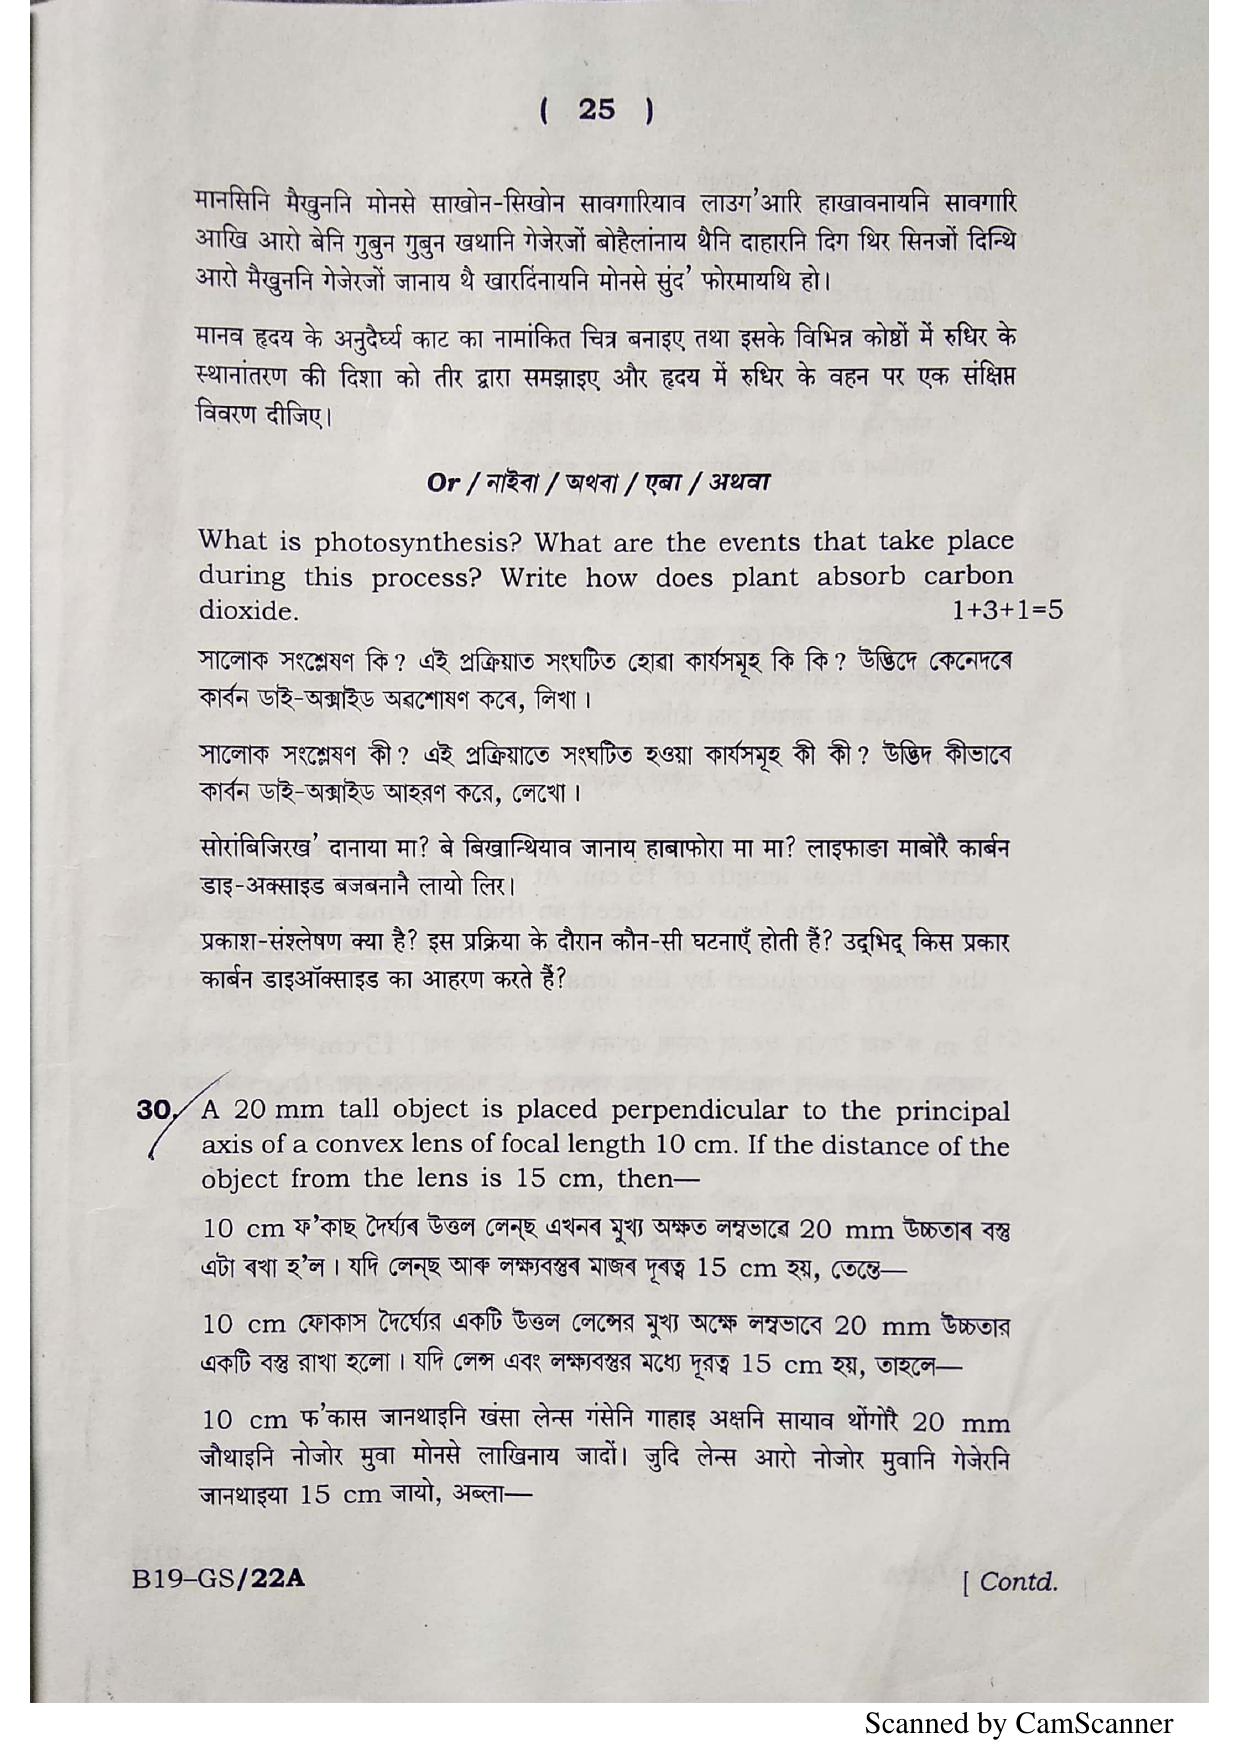 ( 25 )
मानसिनि मैखुननि मोनसे साखोन-सिखोन सावगारियाव लाउग'आरि हाखावनायनि सावगारि
आखि आरो बेनि गुबुन गुबुन खथानि गेजेरजों बोहैलांनाय थैनि दाहारनि दिग थिर सिनजों दिन्थि
आरो मैखुननि गेजेरजों जानाय थै खारदिंनायनि मोनसे सुंद' फोरमायथि हो।
मानव हृदय के अनुदैर्घ्य काट का नामांकित चित्र बनाइए तथा इसके विभिन्न कोष्ठों में रुधिर के
स्थानांतरण की दिशा को तीर द्वारा समझाइए और हृदय में रुधिर के वहन पर एक संक्षिप्त
विवरण दीजिए।
Or / नाइबा / অথবা / एबा / अथवा
What is photosynthesis? What are the events that take place
during this process? Write how does plant absorb carbon
dioxide. 1+3+1=5
সালোক সংশ্লেষণ কি? এই প্ৰক্ৰিয়াত সংঘটিত হোৱা কাৰ্যসমূহ কি কি? উদ্ভিদে কেনেদৰে
কাৰ্বন ডাই-অক্সাইড অৱশোষণ কৰে, লিখা।
সালোক সংশ্লেষণ কী? এই প্রক্রিয়াতে সংঘটিত হওয়া কার্যসমূহ কী কী? উদ্ভিদ কীভাবে
কার্বন ডাই-অক্সাইড আহরণ করে, লেখো।
सोरांबिजिरख' दानाया मा? बे बिखान्थियाव जानाय हाबाफोरा मा मा? लाइफाङा माबोरै कार्बन
डाइ-अक्साइड बजबनानै लायो लिर।
प्रकाश-संश्लेषण क्या है? इस प्रक्रिया के दौरान कौन-सी घटनाएँ होती हैं? उद्‌भिद् किस प्रकार
कार्बन डाइऑक्साइड का आहरण करते हैं?
30. A 20 mm tall object is placed perpendicular to the principal
axis of a convex lens of focal length 10 cm. If the distance of the
object from the lens is 15 cm, then—
10 cm ফ'কাছ দৈৰ্ঘ্যৰ উত্তল লেন্‌ছ এখনৰ মুখ্য অক্ষত লম্বভাৱে 20 mm উচ্চতাৰ বস্তু
এটা ৰখা হ'ল। যদি লেন্‌ছ আৰু লক্ষ্যবস্তুৰ মাজৰ দূৰত্ব 15 cm হয়, তেন্তে—
10 cm ফোকাস দৈর্ঘ্যের একটি উত্তল লেন্সের মুখ্য অক্ষে লম্বভাবে 20 mm উচ্চতার
একটি বস্তু রাখা হলো। যদি লেন্স এবং লক্ষ্যবস্তুর মধ্যে দূরত্ব 15 cm হয়, তাহলে—
10 cm फ'कास जानथाइनि खंसा लेन्स गंसेनि गाहाइ अक्षनि सायाव थोंगोरै 20 mm
जौथाइनि नोजोर मुवा मोनसे लाखिनाय जादों। जुदि लेन्स आरो नोजोर मुवानि गेजेरनि
जानथाइया 15 cm जायो, अब्ला—
B19–GS/22A [ Contd.
Scanned by CamScanner